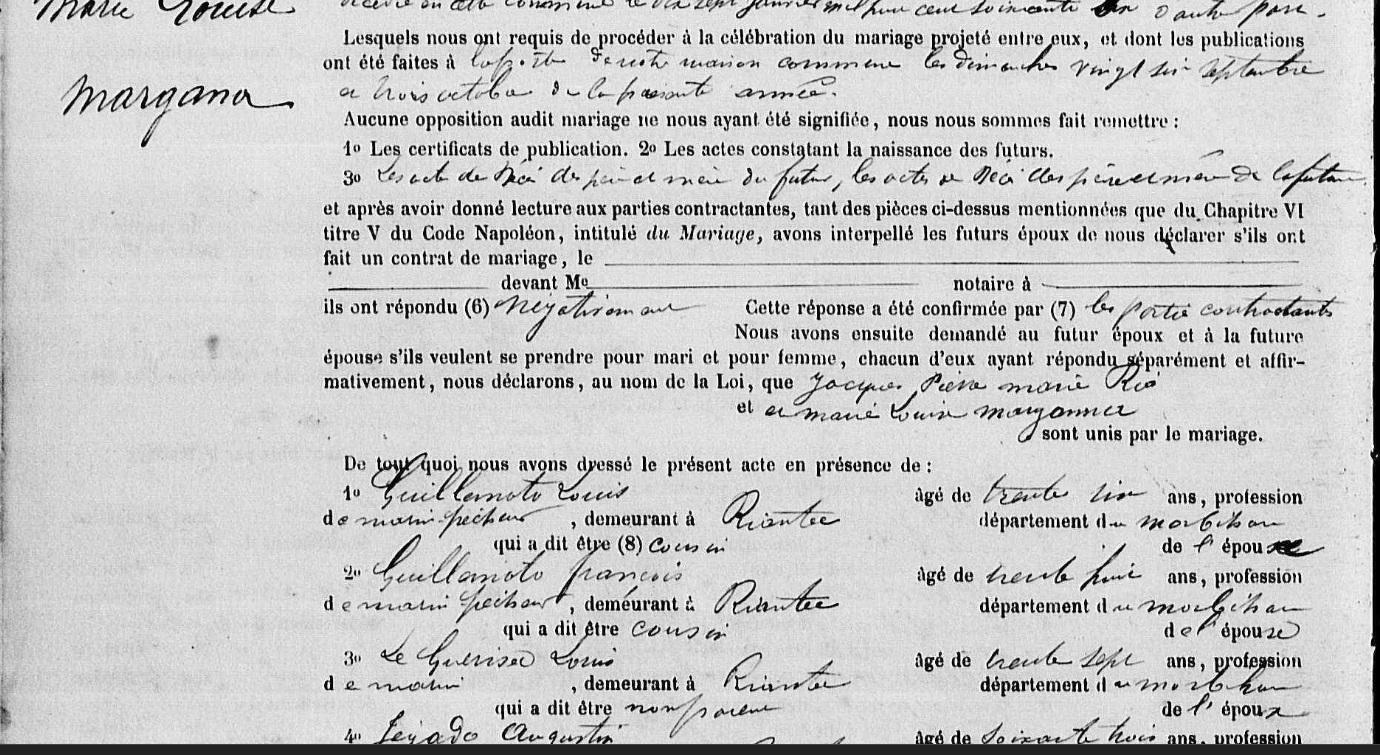 Marie Louise
Margana
décédé en cette commune le dix sept janvier mil huit cent soixante un d'autre part.
Lesquels nous ont requis de procéder à la célébration du mariage projeté entre eux, et dont les publications
ont été faites à la porte de notre maison commune les dimanches vingt six septembre
et trois octobre de la présente année.
Aucune opposition audit mariage ne nous ayant été signifiée, nous nous sommes fait remettre :
1o Les certificats de publication. 2o Les actes constatant la naissance des futurs.
3o Les acte de Décè des père et mère du futur, les actes de Décè des père et mère de la future
et après avoir donné lecture aux parties contractantes, tant des pièces ci-dessus mentionnées que du Chapitre VI
titre V du Code Napoléon, intitulé du Mariage, avons interpellé les futurs époux de nous déclarer s'ils ont
fait un contrat de mariage, le
devant Me notaire à
ils ont répondu (6) négativement Cette réponse a été confirmée par (7) les partie contractants
Nous avons ensuite demandé au futur époux et à la future
épouse s'ils veulent se prendre pour mari et pour femme, chacun d'eux ayant répondu séparément et affir-
mativement, nous déclarons, au nom de la Loi, que Jacques Pierre marie Rio
et et marie Louise marganna
sont unis par le mariage.
De tout quoi nous avons dressé le présent acte en présence de :
1o Guillamoto Louis âgé de trente six ans, profession
de marin pécheur, demeurant à Riantec département du morbihan
qui a dit être (8) cousin de l'épouse
2o Guillamoto françois âgé de trente huit ans, profession
de marin pécheur, demeurant à Riantec département du morbihan
qui a dit être cousin de l'épouse
3o Le Guerisec Louis âgé de trente sept ans, profession
de marin, demeurant à Riantec département du morbihan
qui a dit être non parent de l'époux
4o Augustin âgé de soixante trois ans, profession